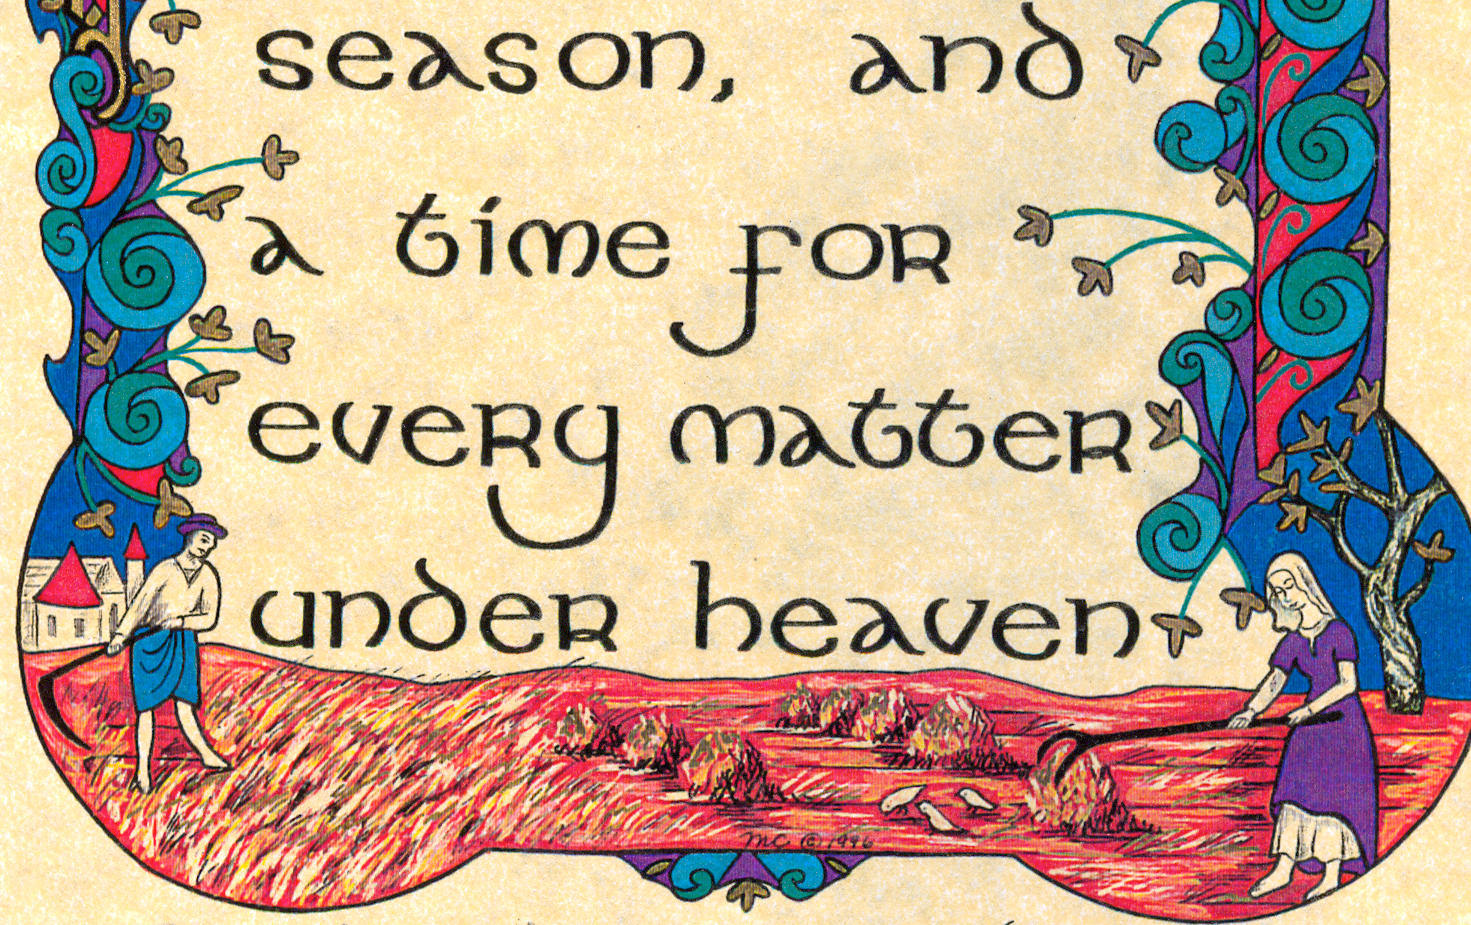 season, and
a time for
every matter
under heaven
MC © 1996